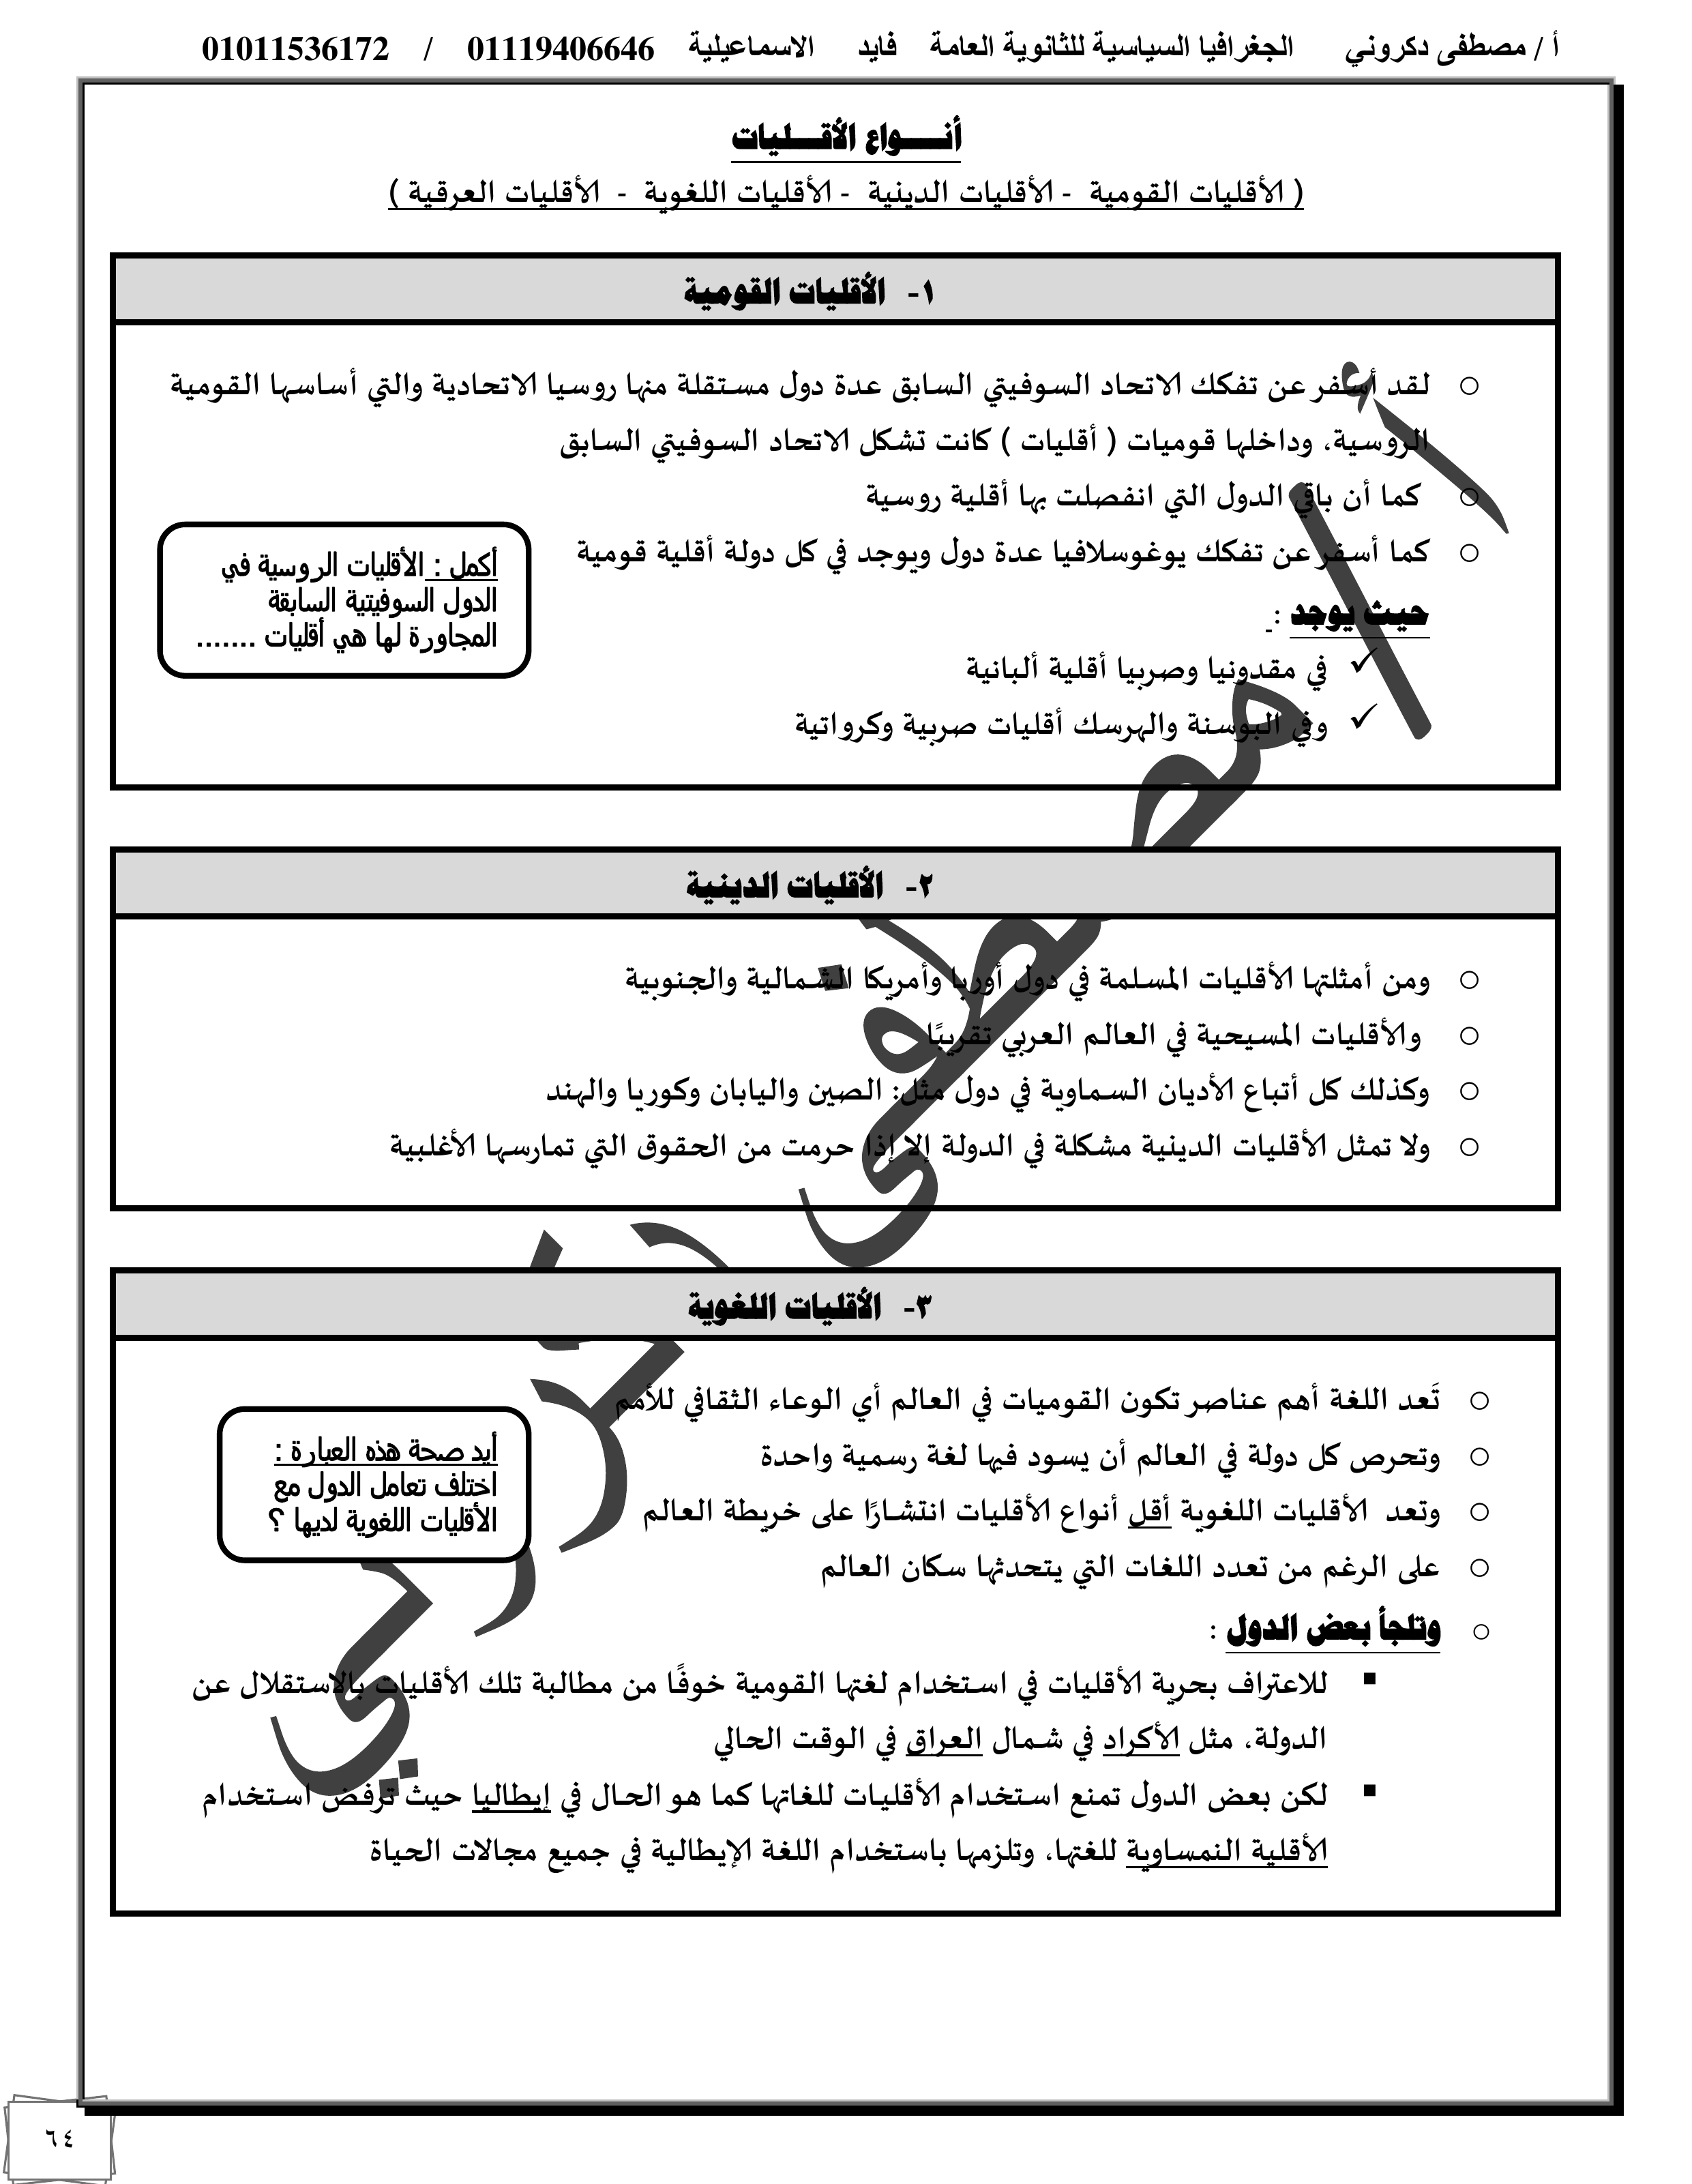 أ / مصطفى دكروني الجغرافيا السياسية للثانوية العامة فايد الاسماعيلية 01119406646 / 01011536172
أنـــواع الأقـــليات
( الأقليات القومية - الأقليات الدينية - الأقليات اللغوية - الأقليات العرقية )
١- الأقليات القومية
○ لقد أسفر عن تفكك الاتحاد السوفيتي السابق عدة دول مستقلة منها روسيا الاتحادية والتي أساسها القومية
الروسية، وداخلها قوميات ( أقليات ) كانت تشكل الاتحاد السوفيتي السابق
○ كما أن باقي الدول التي انفصلت بها أقلية روسية
○ كما أسفر عن تفكك يوغوسلافيا عدة دول ويوجد في كل دولة أقلية قومية
حيث يوجد :
✓ في مقدونيا وصربيا أقلية ألبانية
✓ وفي البوسنة والهرسك أقليات صربية وكرواتية
أكمل : الأقليات الروسية في
الدول السوفيتية السابقة
المجاورة لها هي أقليات .......
٢- الأقليات الدينية
○ ومن أمثلتها الأقليات المسلمة في دول أوربا وأمريكا الشمالية والجنوبية
○ والأقليات المسيحية في العالم العربي تقريبًا
○ وكذلك كل أتباع الأديان السماوية في دول مثل: الصين واليابان وكوريا والهند
○ ولا تمثل الأقليات الدينية مشكلة في الدولة إلا إذا حرمت من الحقوق التي تمارسها الأغلبية
٣- الأقليات اللغوية
○ تَعد اللغة أهم عناصر تكون القوميات في العالم أي الوعاء الثقافي للأمم
○ وتحرص كل دولة في العالم أن يسود فيها لغة رسمية واحدة
○ وتعد الأقليات اللغوية أقل أنواع الأقليات انتشارًا على خريطة العالم
○ على الرغم من تعدد اللغات التي يتحدثها سكان العالم
○ وتلجأ بعض الدول :
▪ للاعتراف بحرية الأقليات في استخدام لغتها القومية خوفًا من مطالبة تلك الأقليات بالاستقلال عن
الدولة، مثل الأكراد في شمال العراق في الوقت الحالي
▪ لكن بعض الدول تمنع استخدام الأقليات للغاتها كما هو الحال في إيطاليا حيث ترفض استخدام
الأقلية النمساوية للغتها، وتلزمها باستخدام اللغة الإيطالية في جميع مجالات الحياة
أيد صحة هذه العبارة :
اختلف تعامل الدول مع
الأقليات اللغوية لديها ؟
أ / مصطفى دكروني
٦٤